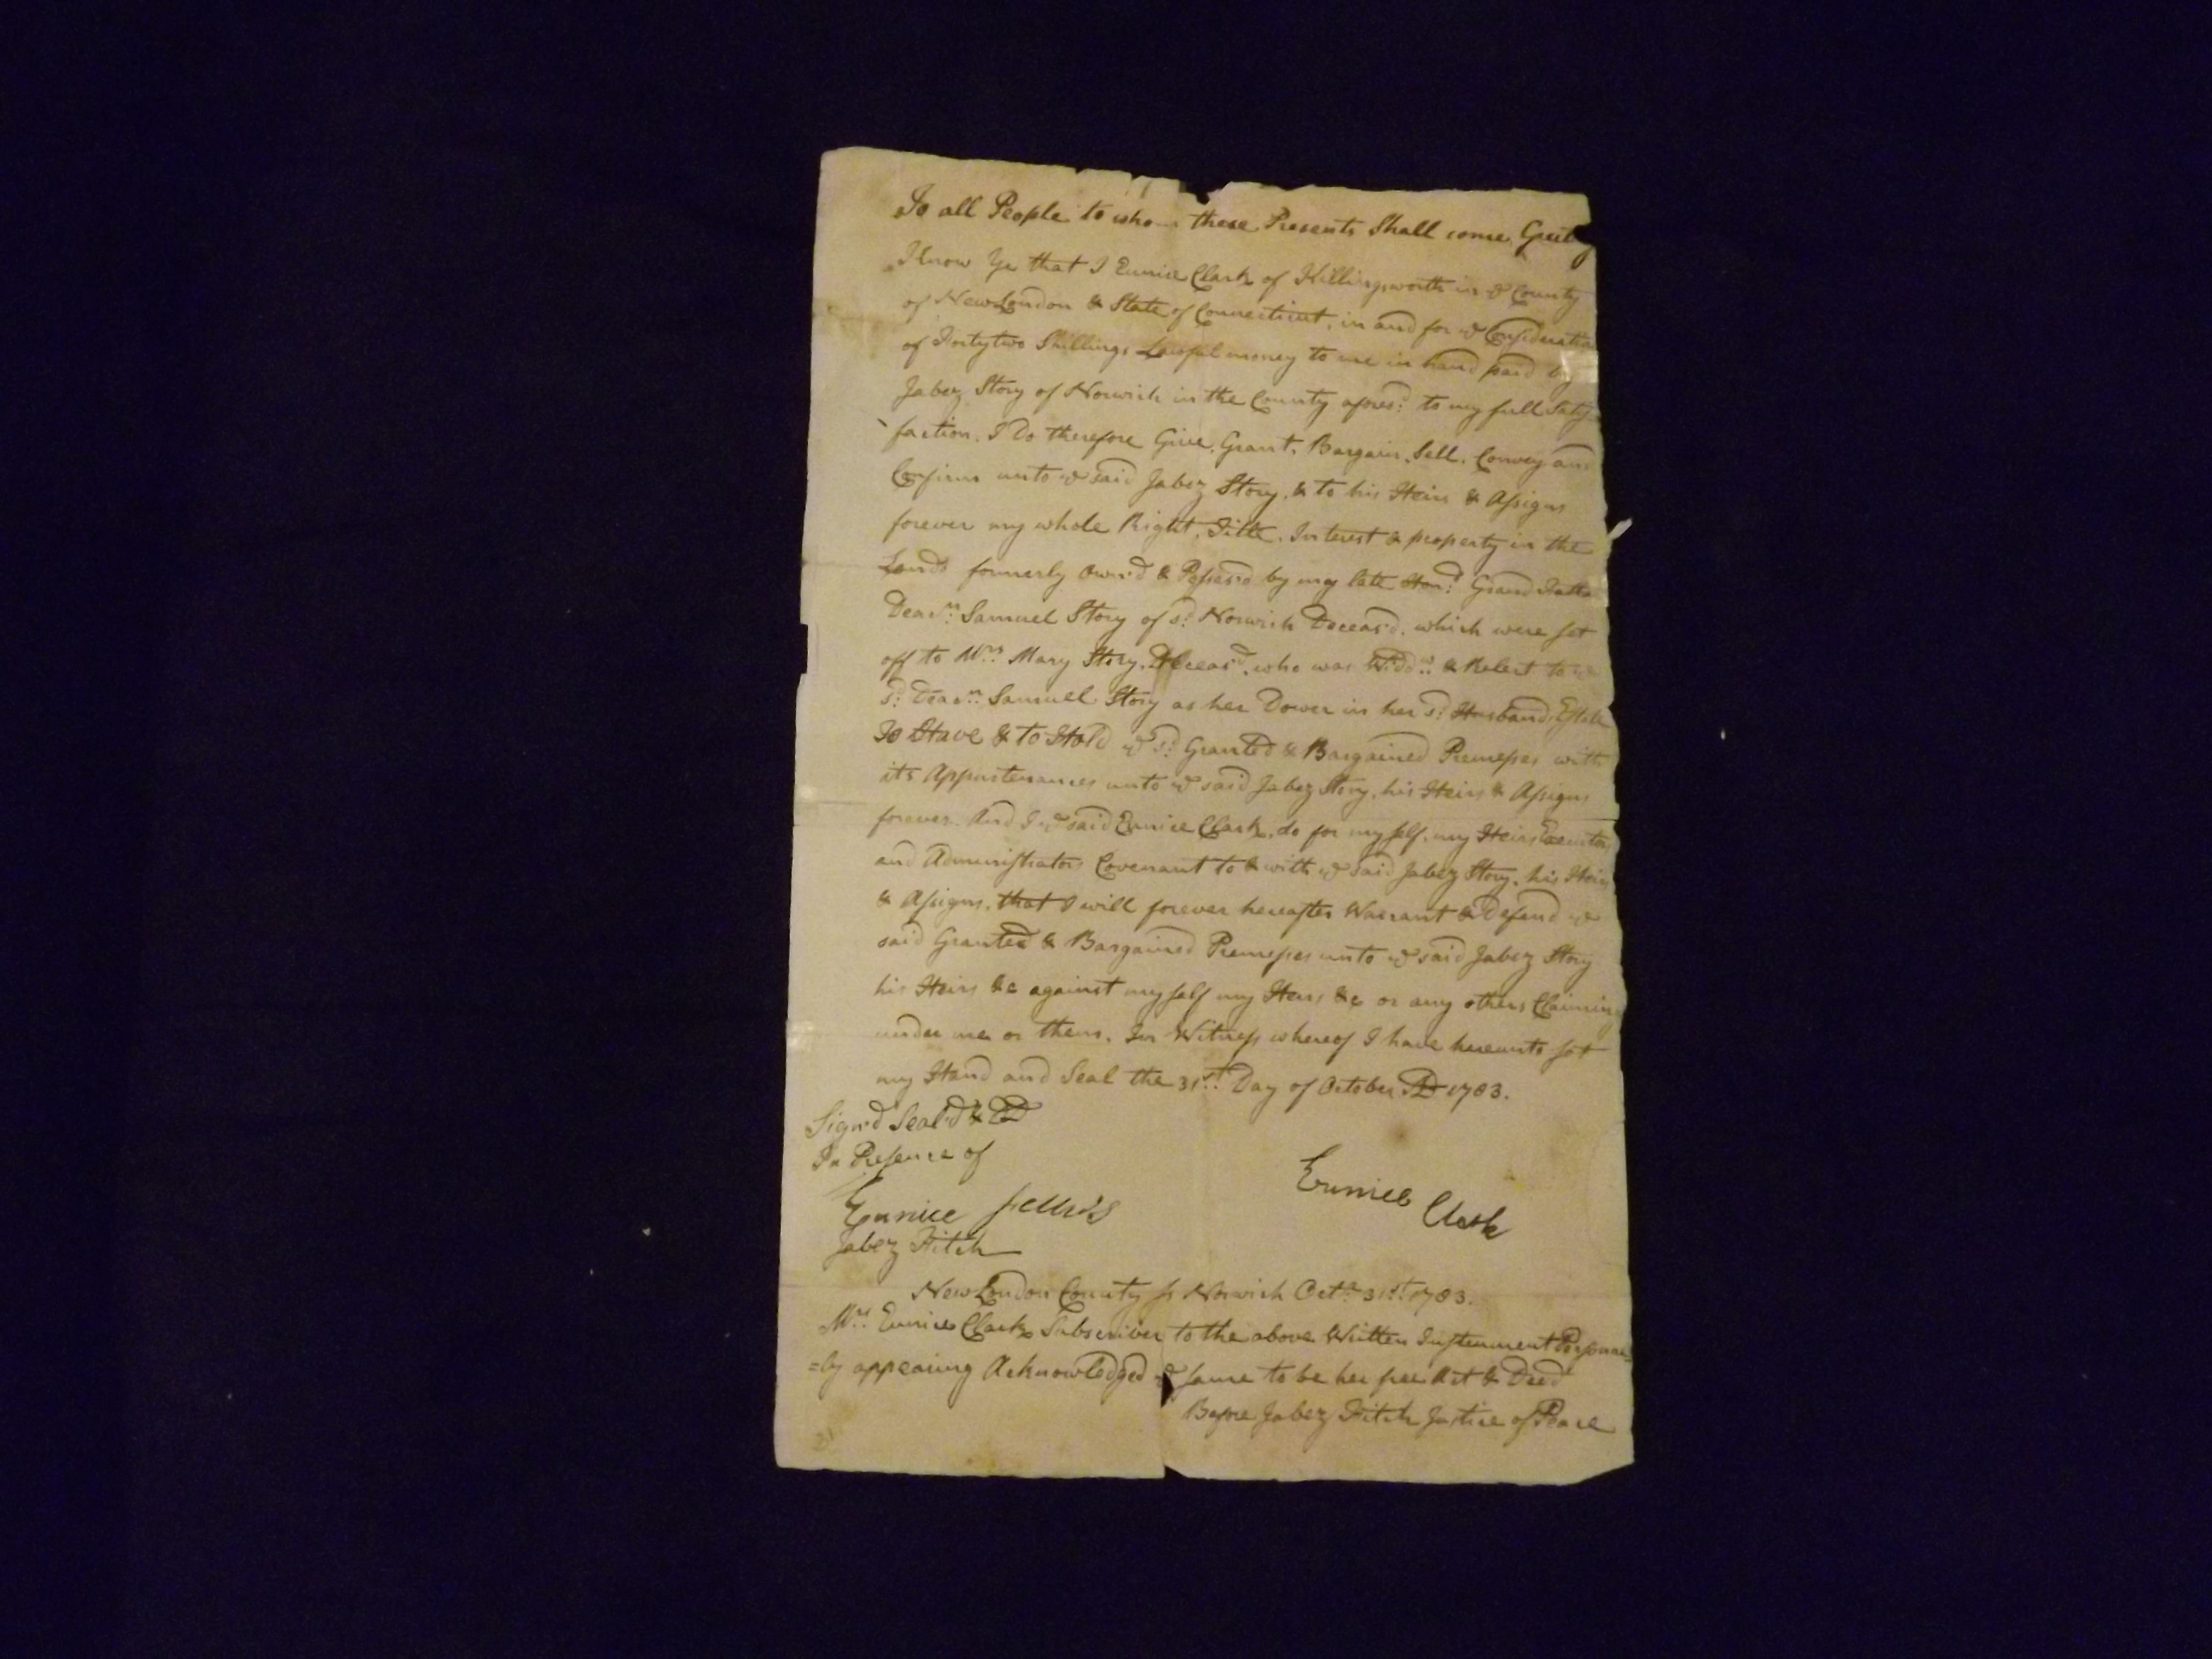 To all People to whom these Presents Shall come Greeting
Know Ye that I Eunice Clark of Killingsworth in ye County
of New London & State of Connecticut, in and for ye Consideration
of Fortytwo Shillings Lawful money to me in hand paid by
Jabez Story of Norwich in the County afores.d to my full Satis
faction. I Do therefore Give, Grant, Bargain, Sell, Convey and
Confirm unto ye said Jabez Story, & to his Heirs & Assigns
forever my whole Right, Title, Interest & property in the
Lands formerly Own'd & Posses'd by my late Hon.d Grand Father
Deac.n Samuel Story of s.d Norwich Deceas'd, which were set
off to Mrs Mary Story, Deceas'd, who was Widd.w & Relect to ye
s.d Deac.n Samuel Story as her Dower in her s.d Husbands Estate
To Have & to Hold ye s.d Granted & Bargained Premeses with
its Appurtenances unto ye said Jabez Story, his Heirs & Assigns
forever. And I ye said Eunice Clark, do for my self, my Heirs Executors
and Administrators Covenant to & with ye said Jabez Story, his Heirs
& Assigns, that I will forever hereafter Warrant & Defend ye
said Granted & Bargained Premeses unto ye said Jabez Story
his Heirs &c against my self my Heirs &c or any others Claiming
under me or them. In Witness whereof I have hereunto set
my Hand and Seal the 31st Day of October AD 1783.
Sign'd Seal'd & DD
In Presence of
Eunice Clark
Eunice
Jabez Fitch
New London County ss Norwich Octr 31st 1783.
Mrs Eunice Clark Subscriber to the above Written Instrument Personal
=ly appearing Acknowledged ye same to be her free Act & Deed
Before Jabez Fitch Justice of Peace